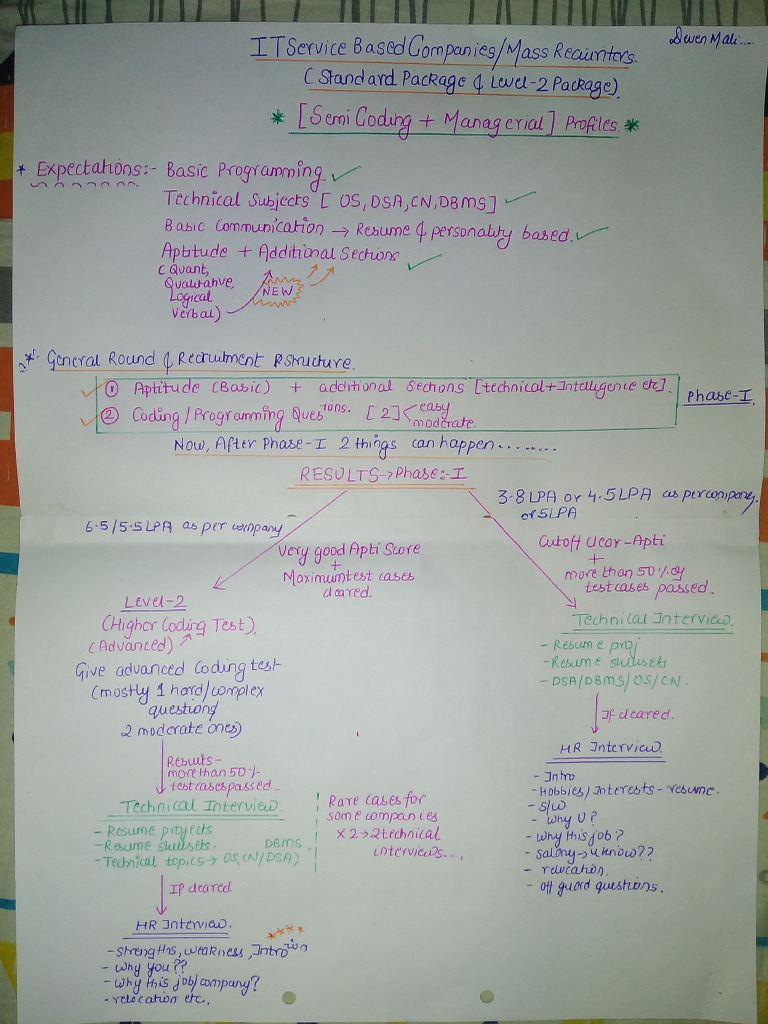 Deven Mali....
IT Service Based Companies/Mass Recruiters.
(Standard Package & Level-2 Package)
* [Semi Coding + Managerial] Profiles. *
* Expectations:- Basic Programming. ✓
Technical Subjects [OS, DSA, CN, DBMS] ✓
Basic Communication → Resume & personality based. ✓
Aptitude + Additional Sections ✓
(Quant,
Qualitative,
Logical
Verbal)
NEW
* General Round & Recruitment Structure.
✓ ① Aptitude (Basic) + additional Sections [technical+Intelligence etc].
✓ ② Coding/Programming Questions. [2] < easy
moderate.
Phase-I
Now, After Phase-I 2 things can happen........
RESULTS→Phase:-I
6.5/5.5 LPA as per company
3.8 LPA or 4.5 LPA as per company.
or 5 LPA
Very good Apti Score
+
Maximum test cases
cleared.
Cutoff clear-Apti
+
more than 50% of
testcases passed.
Level-2
(Higher Coding Test).
(Advanced)
Give advanced Coding test
(mostly 1 hard/complex
question/
2 moderate ones)
Results-
more than 50%
testcases passed
Technical Interview.
- Resume projects
- Resume skillsets.
- Technical topics → OS, CN/DSA) DBMS
If cleared
HR Interview.
- strengths, weakness, Introtion
- why you??
- why this job/company?
- relocation etc.
Rare cases for
some companies
x 2 → 2 technical
interviews....
Technical Interview.
- Resume proj
- Resume skillsets
- DSA/DBMS/OS/CN.
If cleared.
HR Interview.
- Intro
- Hobbies/Interests - resume.
- S/W
- Why U?
- Why this job?
- salary → u know??
- relocation.
- off guard questions.